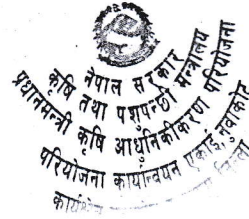 नेपाल सरकार
कृषि तथा पशुपन्छी मन्त्रालय
प्रधानमन्त्री कृषि आधुनिकीकरण परियोजना
परियोजना कार्यान्वयन एकाई, नुवाकोट